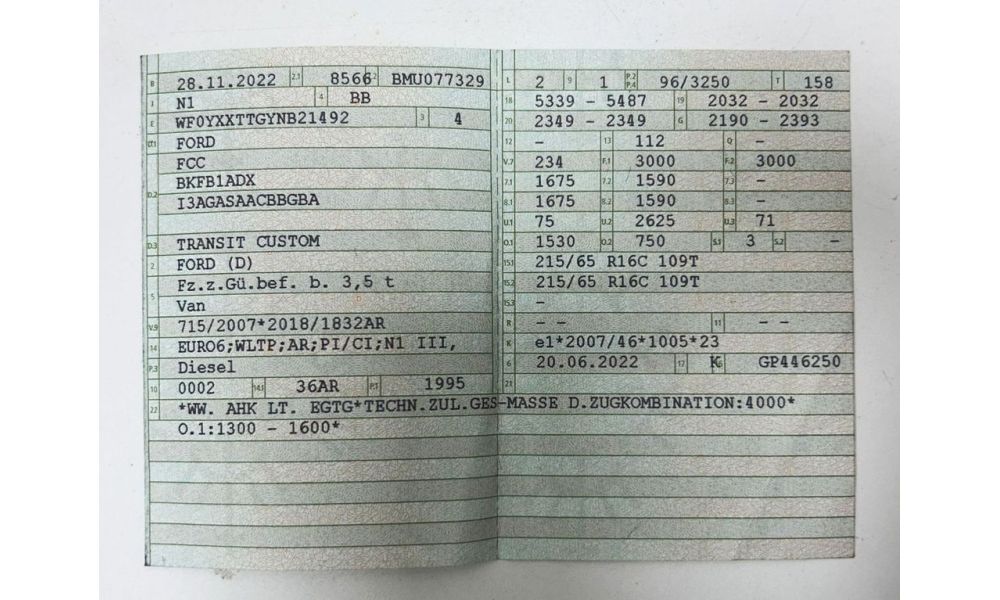 B 28.11.2022 2.1 8566 2.2 BMU077329
J N1 4 BB
E WF0YXXTTGYNB21492 3 4
D.1 FORD
FCC
D.2 BKFB1ADX
I3AGASAACBBGBA
D.3 TRANSIT CUSTOM
2 FORD (D)
5 Fz.z.Gü.bef. b. 3,5 t
Van
V.9 715/2007*2018/1832AR
14 EURO6;WLTP;AR;PI/CI;N1 III,
P.3 Diesel
10 0002 14.1 36AR P.1 1995
22 *WW. AHK LT. EGTG*TECHN.ZUL.GES-MASSE D.ZUGKOMBINATION:4000*
O.1:1300 - 1600*
L 2 9 1 P.2 P.4 96/3250 T 158
18 5339 - 5487 19 2032 - 2032
20 2349 - 2349 G 2190 - 2393
12 - 13 112 Q -
V.7 234 F.1 3000 F.2 3000
7.1 1675 7.2 1590 7.3 -
8.1 1675 8.2 1590 8.3 -
U.1 75 U.2 2625 U.3 71
O.1 1530 O.2 750 S.1 3 S.2 -
15.1 215/65 R16C 109T
15.2 215/65 R16C 109T
15.3 -
R - - 11 - -
K e1*2007/46*1005*23
6 20.06.2022 17 K 16 GP446250
21